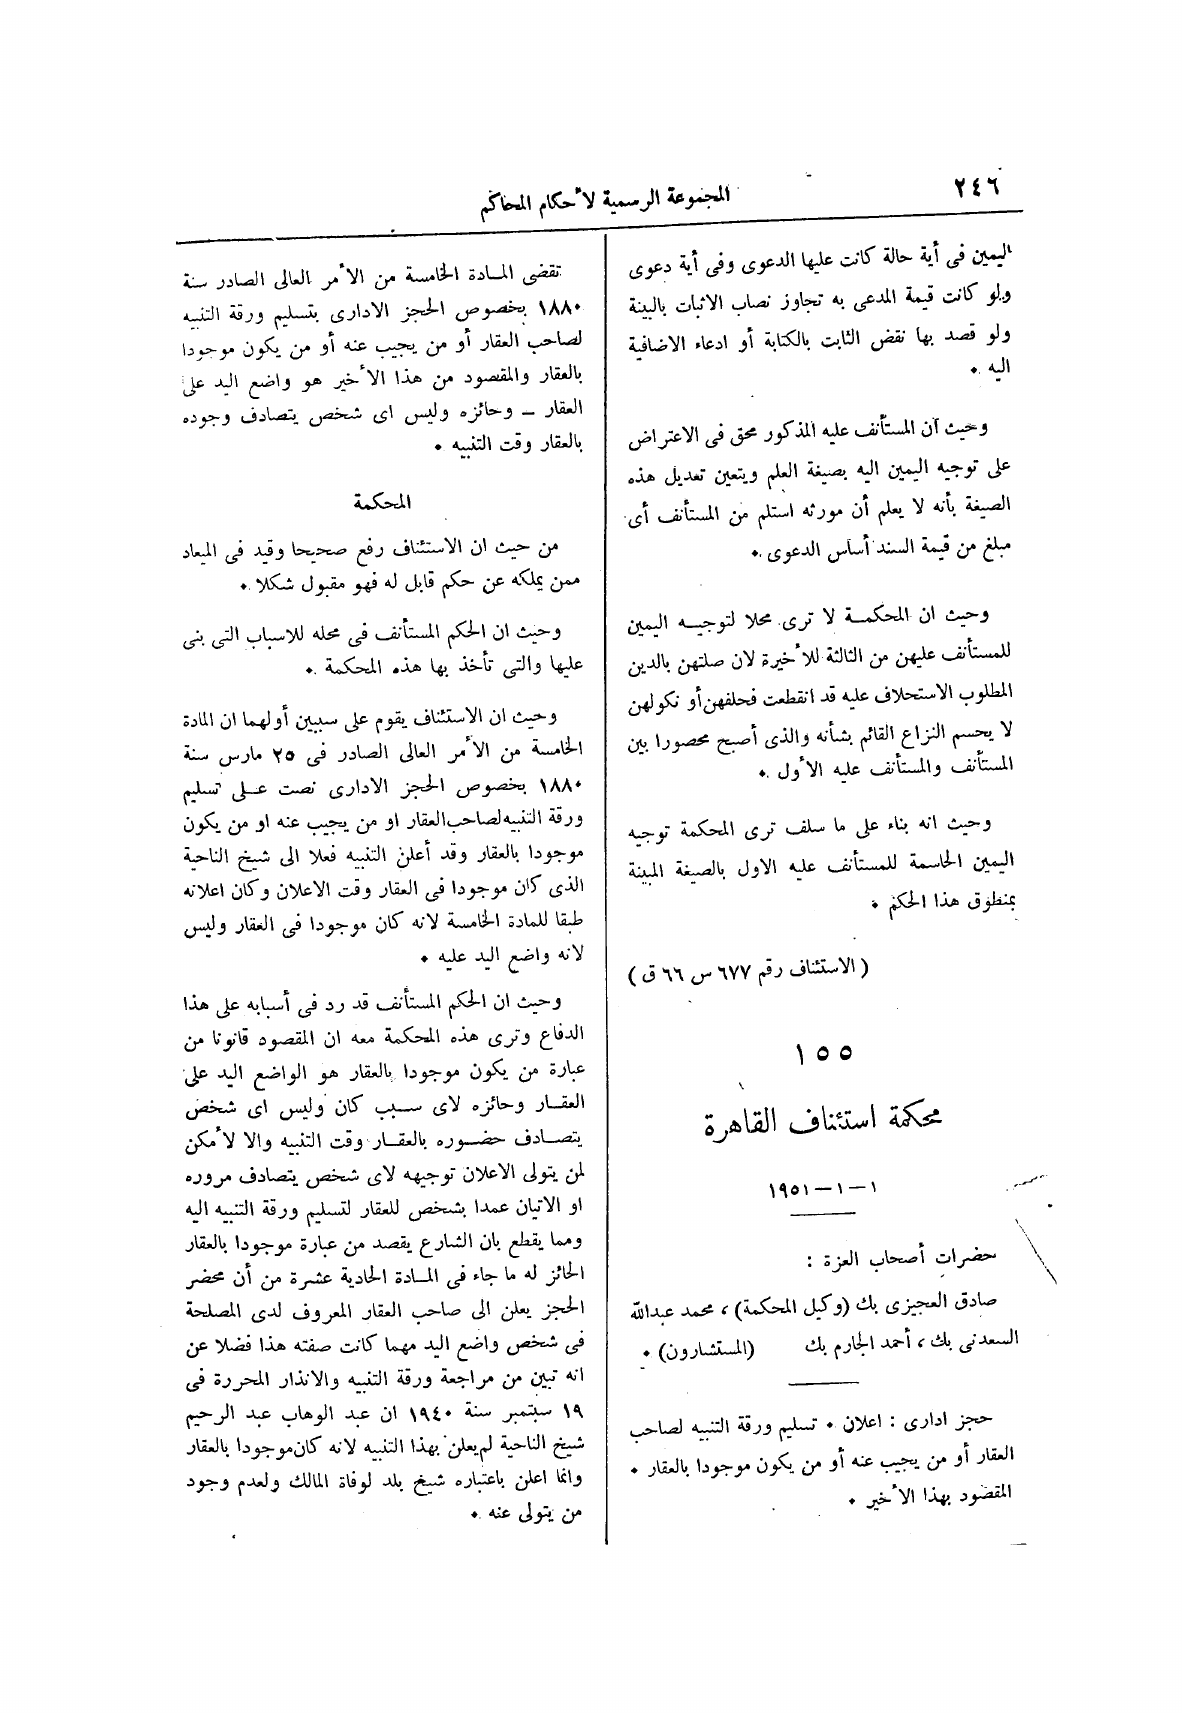 ٢٤٦
المجموعة الرسمية لأحكام المحاكم
اليمين فى أية حالة كانت عليها الدعوى وفى أية دعوى
ولو كانت قيمة المدعى به تجاوز نصاب الاثبات بالبينة
ولو قصد بها نقض الثابت بالكتابة أو ادعاء الاضافية
اليه .
وحيث أن المستأنف عليه المذكور محق فى الاعتراض
على توجيه اليمين اليه بصيغة العلم ويتعين تعديل هذه
الصيغة بأنه لا يعلم أن مورثه استلم من المستأنف أى
مبلغ من قيمة السند أساس الدعوى .
وحيث ان المحكمة لا ترى محلا لتوجيه اليمين
للمستأنف عليهن من الثالثة للأخيرة لان صلتهن بالدين
المطلوب الاستحلاف عليه قد انقطعت فحلفهن أو نكولهن
لا يحسم النزاع القائم بشأنه والذى أصبح محصورا بين
المستأنف والمستأنف عليه الأول .
وحيث انه بناء على ما سلف ترى المحكمة توجيه
اليمين الحاسمة للمستأنف عليه الاول بالصيغة المبينة
بمنطوق هذا الحكم .
( الاستئناف رقم ٦٧٧ س ٦٦ ق )
١٥٥
محكمة استئناف القاهرة
١ – ١ – ١٩٥١
حضرات أصحاب العزة :
صادق العجيزى بك (وكيل المحكمة) ، محمد عبدالله
السعدنى بك ، أحمد الجارم بك (المستشارون) .
حجز ادارى : اعلان . تسليم ورقة التنبيه لصاحب
العقار أو من يجيب عنه أو من يكون موجودا بالعقار .
المقصود بهذا الأخير .
تقضى المادة الخامسة من الأمر العالى الصادر سنة
١٨٨٠ بخصوص الحجز الادارى بتسليم ورقة التنبيه
لصاحب العقار أو من يجيب عنه أو من يكون موجودا
بالعقار والمقصود من هذا الأخير هو واضع اليد على
العقار – وحائزه وليس اى شخص يتصادف وجوده
بالعقار وقت التنبيه .
المحكمة
من حيث ان الاستئناف رفع صحيحا وقيد فى الميعاد
ممن يملكه عن حكم قابل له فهو مقبول شكلا .
وحيث ان الحكم المستأنف فى محله للاسباب التى بنى
عليها والتى تأخذ بها هذه المحكمة .
وحيث ان الاستئناف يقوم على سببين أولهما ان المادة
الخامسة من الأمر العالى الصادر فى ٢٥ مارس سنة
١٨٨٠ بخصوص الحجز الادارى نصت على تسليم
ورقة التنبيه لصاحب العقار او من يجيب عنه او من يكون
موجودا بالعقار وقد أعلن التنبيه فعلا الى شيخ الناحية
الذى كان موجودا فى العقار وقت الاعلان وكان اعلانه
طبقا للمادة الخامسة لانه كان موجودا فى العقار وليس
لانه واضع اليد عليه .
وحيث ان الحكم المستأنف قد رد فى أسبابه على هذا
الدفاع وترى هذه المحكمة معه ان المقصود قانونا من
عبارة من يكون موجودا بالعقار هو الواضع اليد على
العقار وحائزه لاى سبب كان وليس اى شخص
يتصادف حضوره بالعقار وقت التنبيه والا لأمكن
لمن يتولى الاعلان توجيهه لاى شخص يتصادف مروره
او الاتيان عمدا بشخص للعقار لتسليم ورقة التنبيه اليه
ومما يقطع بان الشارع يقصد من عبارة موجودا بالعقار
الحائز له ما جاء فى المادة الحادية عشرة من أن محضر
الحجز يعلن الى صاحب العقار المعروف لدى المصلحة
فى شخص واضع اليد مهما كانت صفته هذا فضلا عن
انه تبين من مراجعة ورقة التنبيه والانذار المحررة فى
١٩ سبتمبر سنة ١٩٤٠ ان عبد الوهاب عبد الرحيم
شيخ الناحية لم يعلن بهذا التنبيه لانه كان موجودا بالعقار
وانما اعلن باعتباره شيخ بلد لوفاة المالك ولعدم وجود
من يتولى عنه .